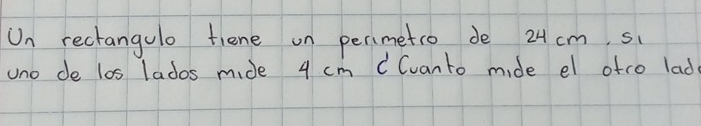 Un rectangulo tiene un perimetro de 24 cm, si
uno de los lados mide 4 cm ¿Cuanto mide el otro lado